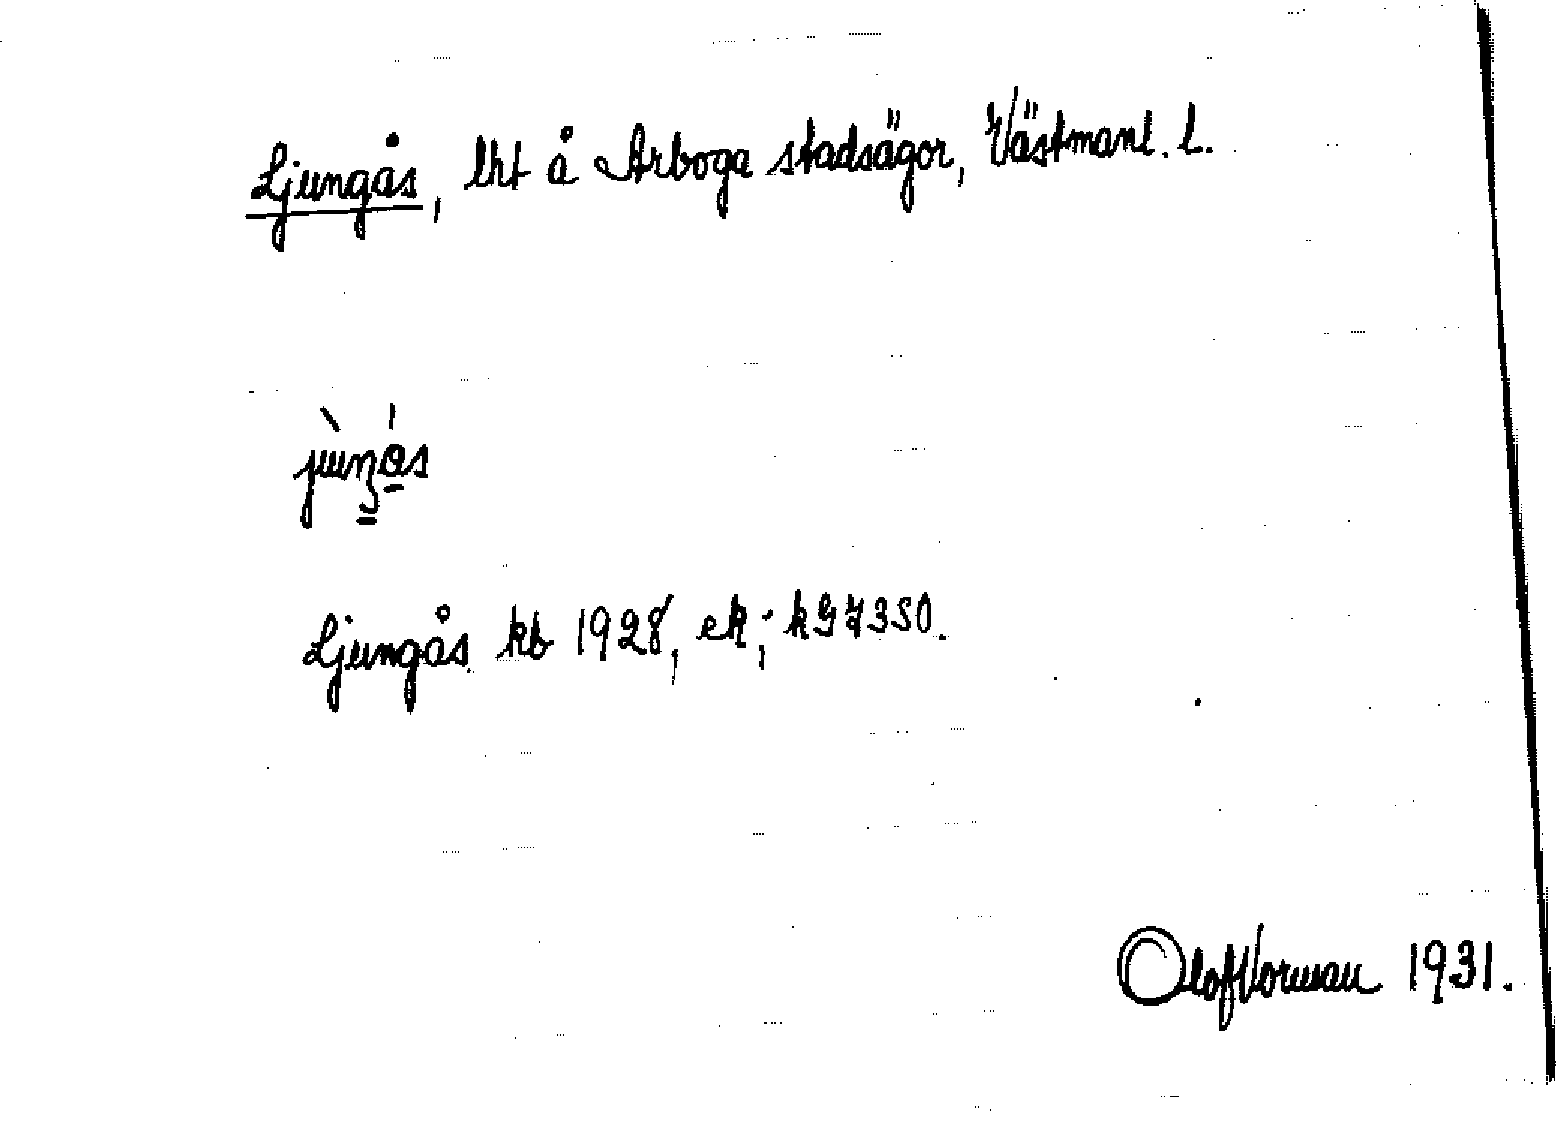 Ljungås, lht å Arboga stadsägor, Västmanl. l.
Ljungås kb 1928, ek; kGJ350.
Olof Vorman 1931.